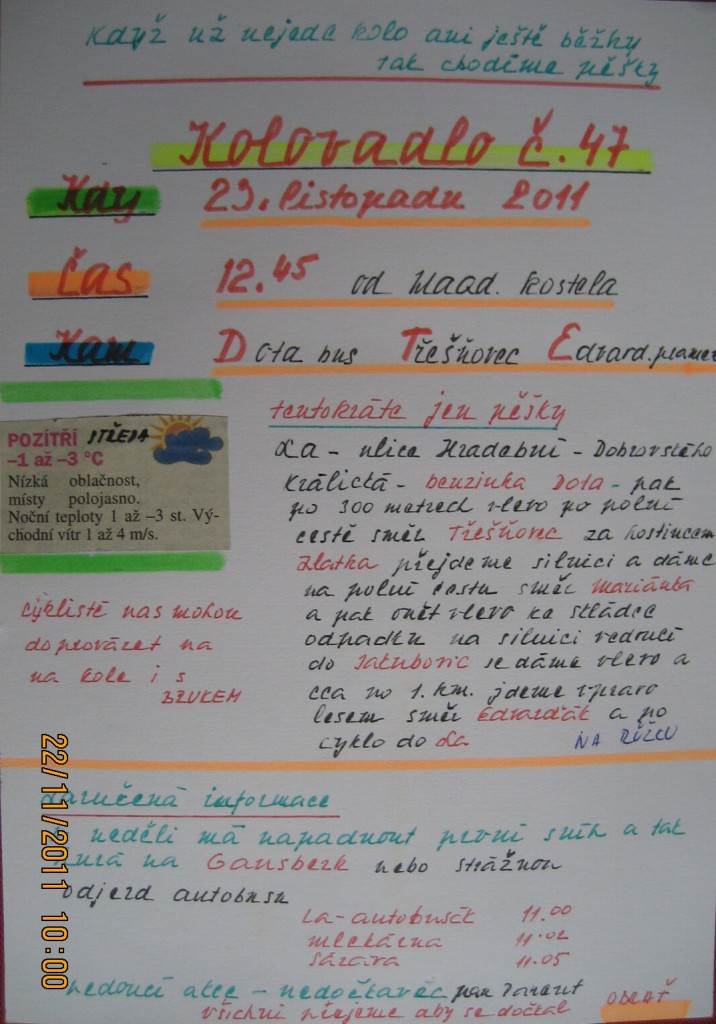 Když už nejede kolo ani ještě běžky
tak chodíme pěšky
Kolovadlo č.47
Kdy 23. listopadu 2011
Čas 12.45 od Maad. kostela
Kam Dota bus Třešňovec Edvard. pramen
tentokráte jen pěšky
POZÍTŘÍ STŘEDA
–1 až –3 °C
Nízká oblačnost,
místy polojasno.
Noční teploty 1 až –3 st. Vý-
chodní vítr 1 až 4 m/s.
La - ulice Hradební - Dobrovského
Králická - benzinka Dota - pak
po 300 metrech vlevo po polní
cestě směr Třešňovec za hostincem
Zlatka přejdeme silnici a dáme
na polní cestu směr Mariánka
a pak opět vlevo ke skládce
odpadku na silnici vedoucí
do Jakubovic se dáme vlevo a
cca po 1. km. jdeme vpravo
lesem směr Edvarďák a po
cyklo do La NA RŮŽKU
cyklisté nás mohou
doprovázet na
na kole i s
BRUKEM
22/11/2011 10:00
zaručená informace
neděli má napadnout první sníh a tak
túra na Gansberk nebo strážnou
odjezd autobusu
La-autobusák 11.00
mlékárna 11.02
Sázava 11.05
vedoucí akce - nedočkavec pan Parent
všichni přejeme aby se dočkal
OBRAŤ